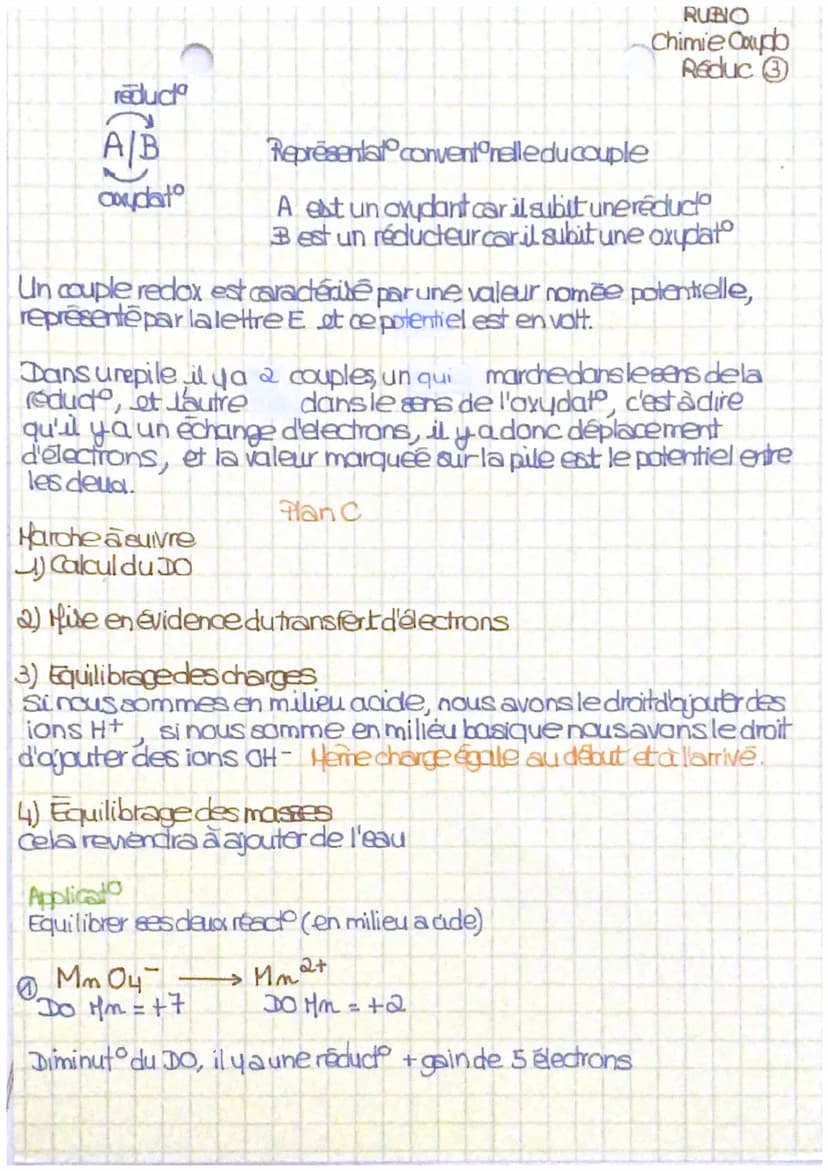 RUBIO
Chimie Oxydo
Réduc ③
réduct°
A/B
oxydat°
Représentat° convent°nelle du couple
A est un oxydant car il subit une réduct°
B est un réducteur car il subit une oxydat°
Un couple redox est caractérisé par une valeur nomée potentielle,
représenté par la lettre E et ce potentiel est en volt.
Dans une pile, il y a 2 couples, un qui marche dans le sens de la
réduct°, et l'autre dans le sens de l'oxydat°, c'est à dire
qu'il y a un échange d'electrons, il y a donc déplacement
d'électrons, et la valeur marquée sur la pile est le potentiel entre
les deux.
Plan C
Marche à suivre
1) Calcul du DO
2) Mise en évidence du transfert d'électrons
3) Equilibrage des charges
Si nous sommes en milieu acide, nous avons le droit d'ajouter des
ions H+, si nous somme en milieu basique nous avons le droit
d'ajouter des ions OH- Même charge égale au début et à l'arrivé.
4) Équilibrage des masses
Cela reviendra à ajouter de l'eau
Applicat°
Equilibrer ses deux réact° (en milieu acide)
① MnO4⁻ → Mn²⁺
DO Mn = +7 DO Mn = +2
Diminut° du DO, il y a une réduct° + gain de 5 électrons